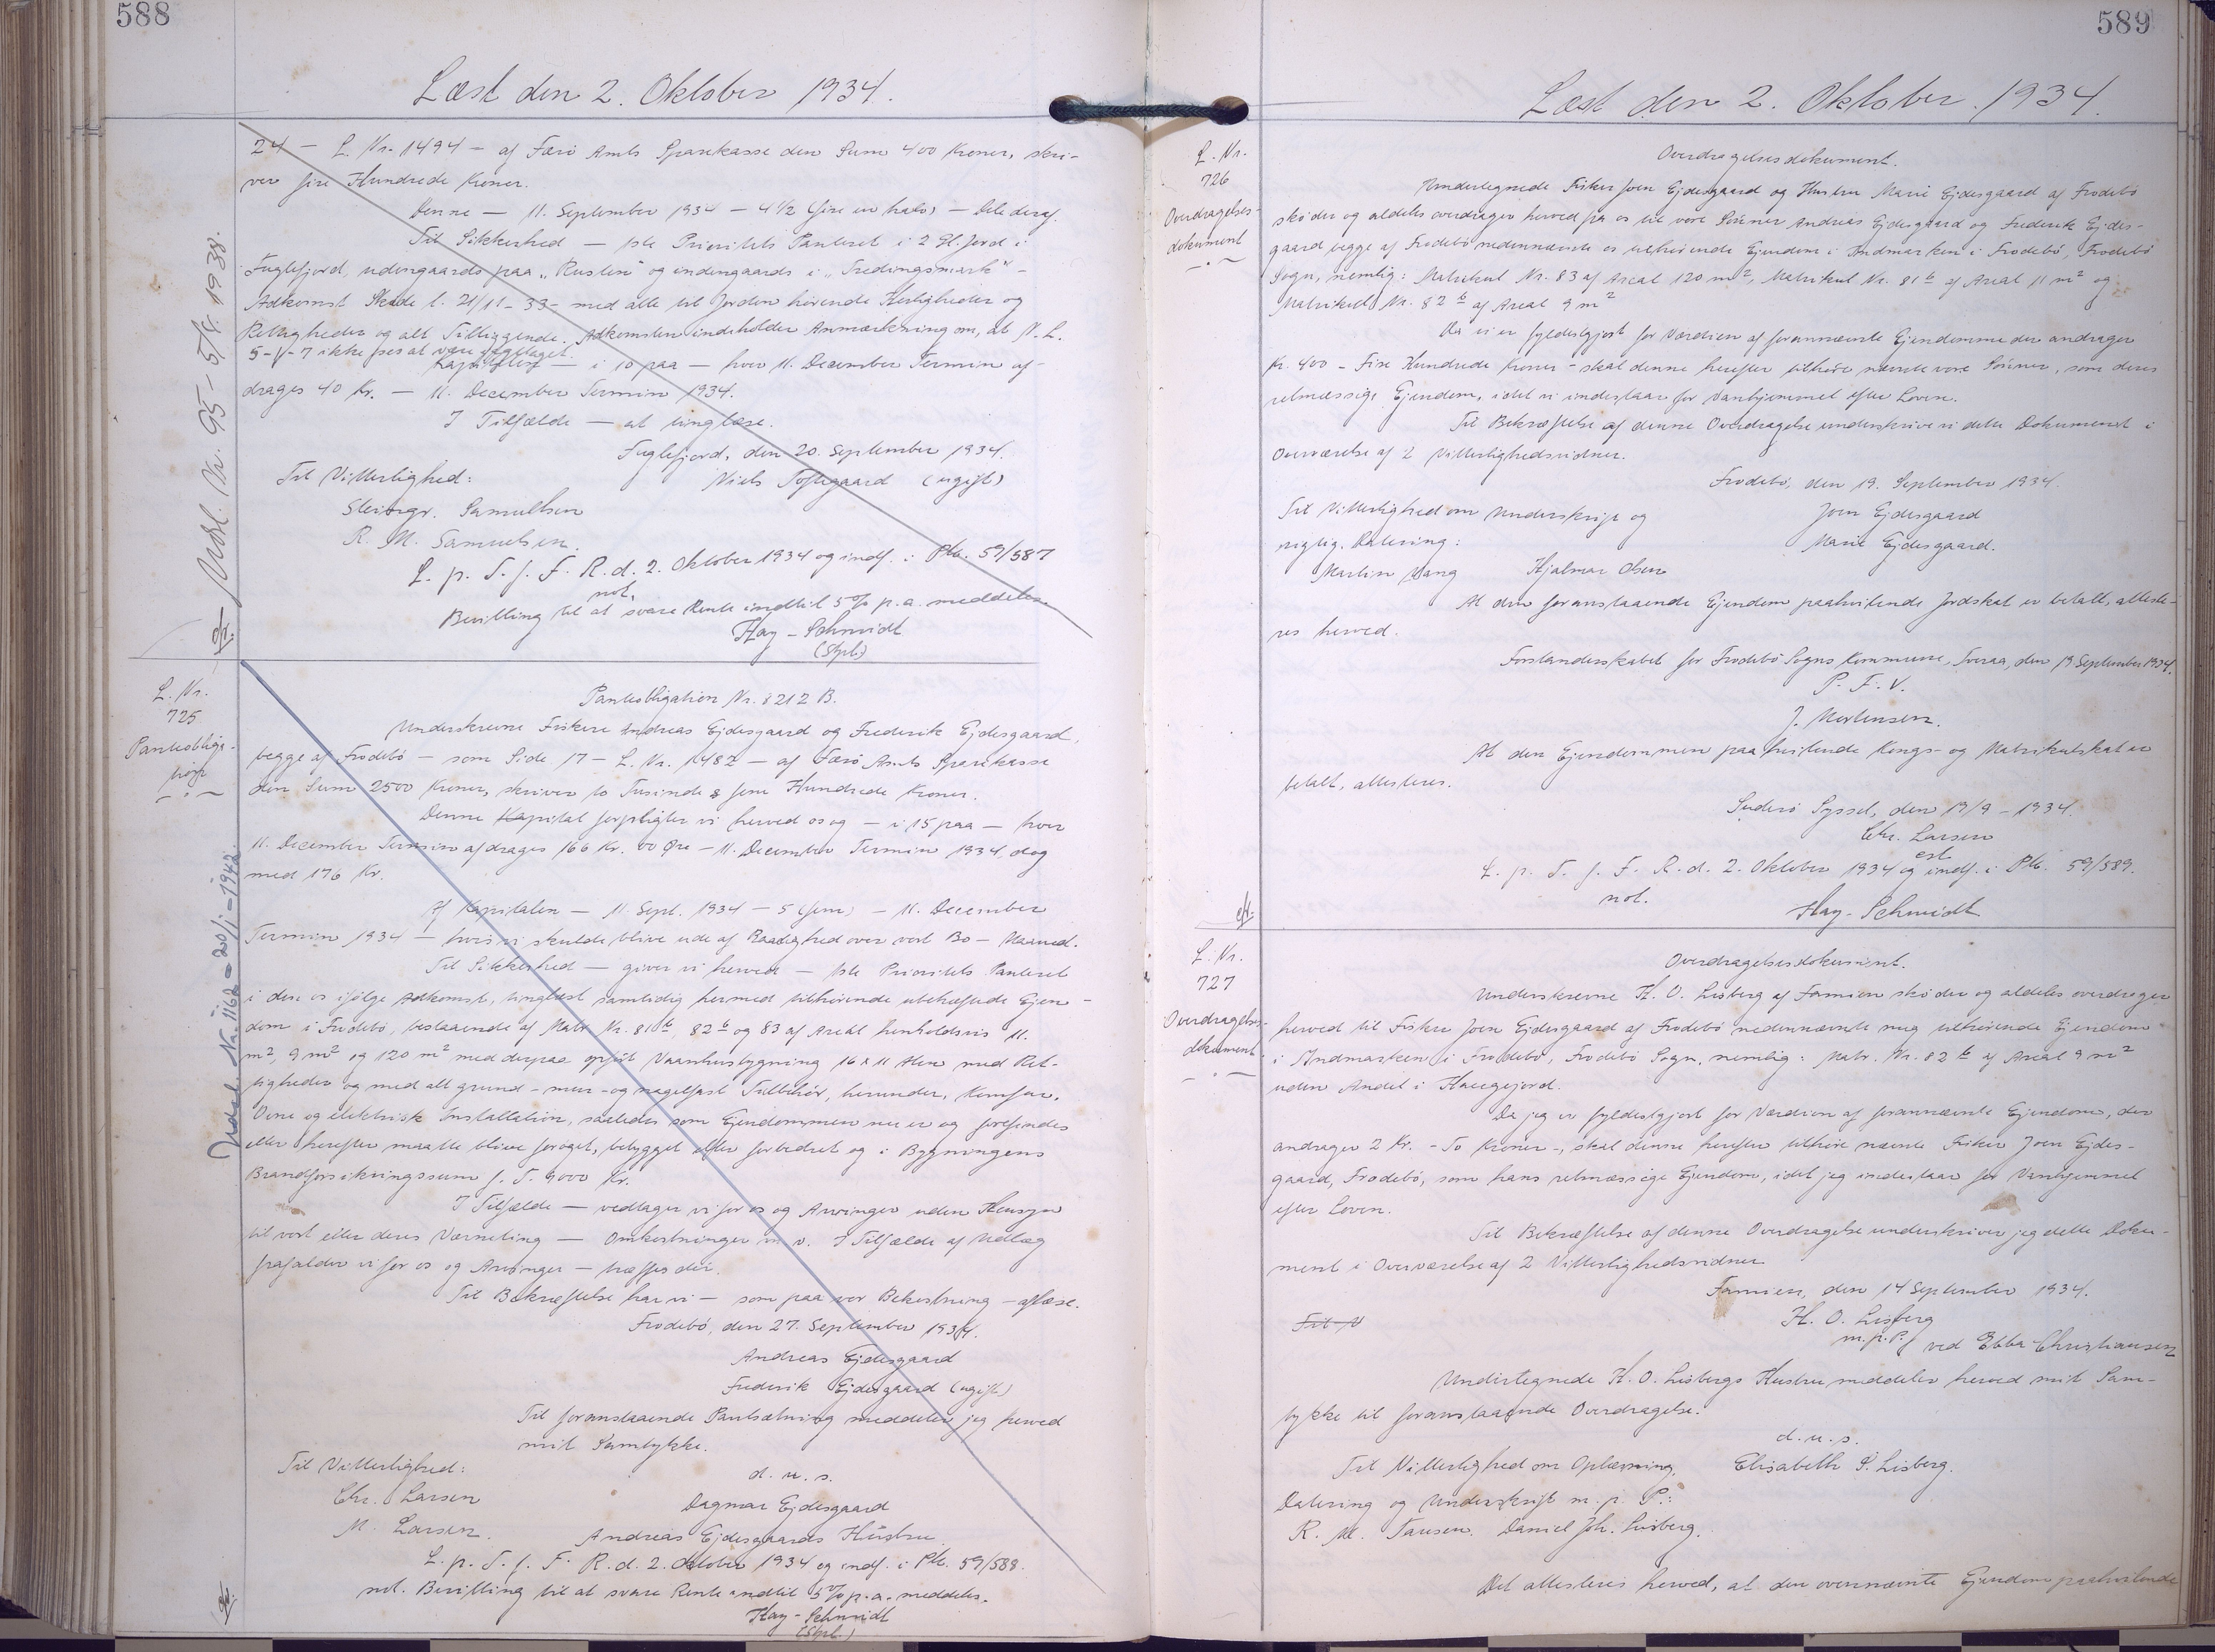 588
Læst den 2. Oktober 1934.
24 — L. Nr. 1494 — af Færø Amts Sparekasse den Sum 400 Kroner, skri-
ver fire Hundrede Kroner.
Denne — 11. September 1934 — 4 1/2 (fire en halv) — Dele deraf.
Til Sikkerhed — 1ste Prioritets Panteret i 2 Gl. Jord i
Fuglefjord, udengaards paa "Rustin" og indengaards i "Tredingsmark" —
Adkomst Skøde l. 21/11-33- med alle til Jorden hørende Herligheder og
Rettigheder og alt Tilliggende. Adkomsten indeholder Anmærkning om, at N. L.
5-1-7 ikke ses at være iagttaget.
— i 10 paa — hver 11. December Termin af-
drages 40 Kr. — 11. December Termin 1934.
I Tilfælde — at tinglæse.
Fuglefjord, den 20. September 1934.
Til Vitterlighed:
Niels Toftegaard (ugift)
Steingr. Samuelsen
R. M. Samuelsen.
L. p. T. f. F. R. d. 2. Oktober 1934 og indf. i Ptb. 59/587
not.
Bevilling til at svare Rente indtil 5 % p. a. meddeles
Hay-Schmidt
(Stpl.)
Udsl. Nr. 95 - 5/4. 1938.
L. Nr.
725
Panteobliga-
tion
Panteobligation Nr. 8212 B.
Underskrevne Fiskere Andreas Ejdesgaard og Frederik Ejdesgaard,
begge af Frodebø — som Side 17 — L. Nr. 1482 — af Færø Amts Sparekasse
den Sum 2500 Kroner, skriver to Tusinde & fem Hundrede Kroner.
Denne Kapital forpligter vi herved os og — i 15 paa — hver
11. December Termin afdrages 166 Kr. 00 Øre — 11. December Termin 1934, dog
med 176 Kr.
Af Kapitalen — 11. Sept. 1934 — 5 (fem) — 11. December
Termin 1934 — hvis vi skulde blive ude af Raadighed over vort Bo — Maaned.
Til Sikkerhed — giver vi herved — 1ste Prioritets Panteret
i den os ifølge Adkomst, tinglæst samtidig hermed tilhørende ubehæftede Ejen-
dom i Frodebø, bestaaende af Matr. Nr. 81 b, 82 b og 83 af Areal henholdsvis 11.
m², 9 m² og 120 m² med derpaa opført Vaaningsbygning 16 x 11 Alen med Ret-
tigheder og med alt grund- mur- og nagelfast Tilbehør, herunder, Komfur,
Ovne og elektrisk Installation, saaledes som Ejendommen nu er og forefindes
eller herefter maatte blive forøget, bebygget eller forbedret og i Bygningens
Brandforsikringssum f. T. 9000 Kr.
I Tilfælde — vedtager vi for os og Arvinger uden Hensyn
til vort eller deres Værneting — Omkostninger m. v. I Tilfælde af Udlæg
frafalder vi for os og Arvinger — træffes der.
Til Bekræftelse har vi — som paa vor Bekostning — aflæse.
Frodebø, den 27. September 1934.
Andreas Ejdesgaard
Frederik Ejdesgaard (ugift)
Til foranstaaende Pantsætning meddeler jeg herved
mit Samtykke.
Til Vitterlighed:
d. u. s.
Chr. Larsen
Dagmar Ejdesgaard
M. Larsen.
Andreas Ejdesgaards Hustru
L. p. T. f. F. R. d. 2. Oktober 1934 og indf. i Ptb. 59/588.
not. Bevilling til at svare Rente indtil 5 % p. a. meddeles.
Hay-Schmidt
(Stpl.)
Udsl. Nr. 1162 - 20/ - 1942.
589
Læst den 2. Oktober. 1934.
L. Nr.
726
Overdragelses-
dokument
Overdragelsesdokument.
Undertegnede Fisker Joen Ejdesgaard og Hustru Marie Ejdesgaard af Frodebø
skøder og aldeles overdrager herved fra os til vore Sønner Andreas Ejdesgaard og Frederik Ejdes-
gaard begge af Frodebø nedennævnte os tilhørende Ejendom i Indmarken i Frodebø, Frodebø
Sogn, nemlig: Matrikul Nr. 83 af Areal 120 m², Matrikul Nr. 81 b af Areal 11 m² og
Matrikul Nr. 82 b af Areal 9 m²
Da vi er fyldestgjort for Værdien af forannævnte Ejendomme der andrager
Kr. 400 - Fire Hundrede Kroner - skal denne herefter tilhøre nævnte vore Sønner, som deres
retmæssige Ejendom, idet vi indestaar for Vanhjemmel efter Loven.
Til Bekræftelse af denne Overdragelse underskrive vi dette Dokument i
Overværelse af 2 Vitterlighedsvidner.
Frodebø, den 19. September 1934.
Til Vitterlighed om Underskrift og
Joen Ejdesgaard
rigtig. Datering:
Marie Ejdesgaard.
Martin Vang Hjalmar Olsen
At den foranstaaende Ejendom paahvilende Jordskat er betalt, atteste-
res herved.
Forstanderskabet for Frodebø Sogns Kommune, Tveraa, den 19 September 1934.
P. F. V.
J. Mortensen.
At den Ejendommen paahvilende Kongs- og Matrikulskat er
betalt, attesteres.
Suderø Syssel, den 19/9 - 1934.
Chr. Larsen
cst.
L. p. T. f. F. R. d. 2. Oktober 1934 og indf. i Ptb. 59/589.
not.
Hay-Schmidt
L. Nr.
727
Overdragelses-
dokument.
Overdragelsesdokument.
Underskrevne H. O. Lisberg af Famien skøder og aldeles overdrager
herved til Fisker Joen Ejdesgaard af Frodebø nedennævnte mig tilhørende Ejendom
i Indmarken i Frodebø, Frodebø Sogn, nemlig: Matr. Nr. 82 b af Areal 9 m²
uden Andel i Haugejord.
Da jeg er fyldestgjort for Værdien af forannævnte Ejendom, der
andrager 2 Kr. - To Kroner -, skal denne herefter tilhøre nævnte Fisker Joen Ejdes-
gaard, Frodebø, som hans retmæssige Ejendom, idet jeg indestaar for Vanhjemmel
efter Loven.
Til Bekræftelse af denne Overdragelse underskriver jeg dette Doku-
ment i Overværelse af 2 Vitterlighedsvidner
Famien, den 14 September 1934.
Til V
H. O. Lisberg
m. p. P. ved Ebba Christiansen
Undertegnede H. O. Lisbergs Hustru meddeler herved mit Sam-
tykke til foranstaaende Overdragelse.
d. u. s.
Til Vitterlighed om Oplæsning,
Elisabeth S. Lisberg.
Datering og Underskrift m. p. P.:
R. M. Tausen. Daniel Joh. Lisberg.
Det attesteres herved, at den ovennævnte Ejendom paahvilende